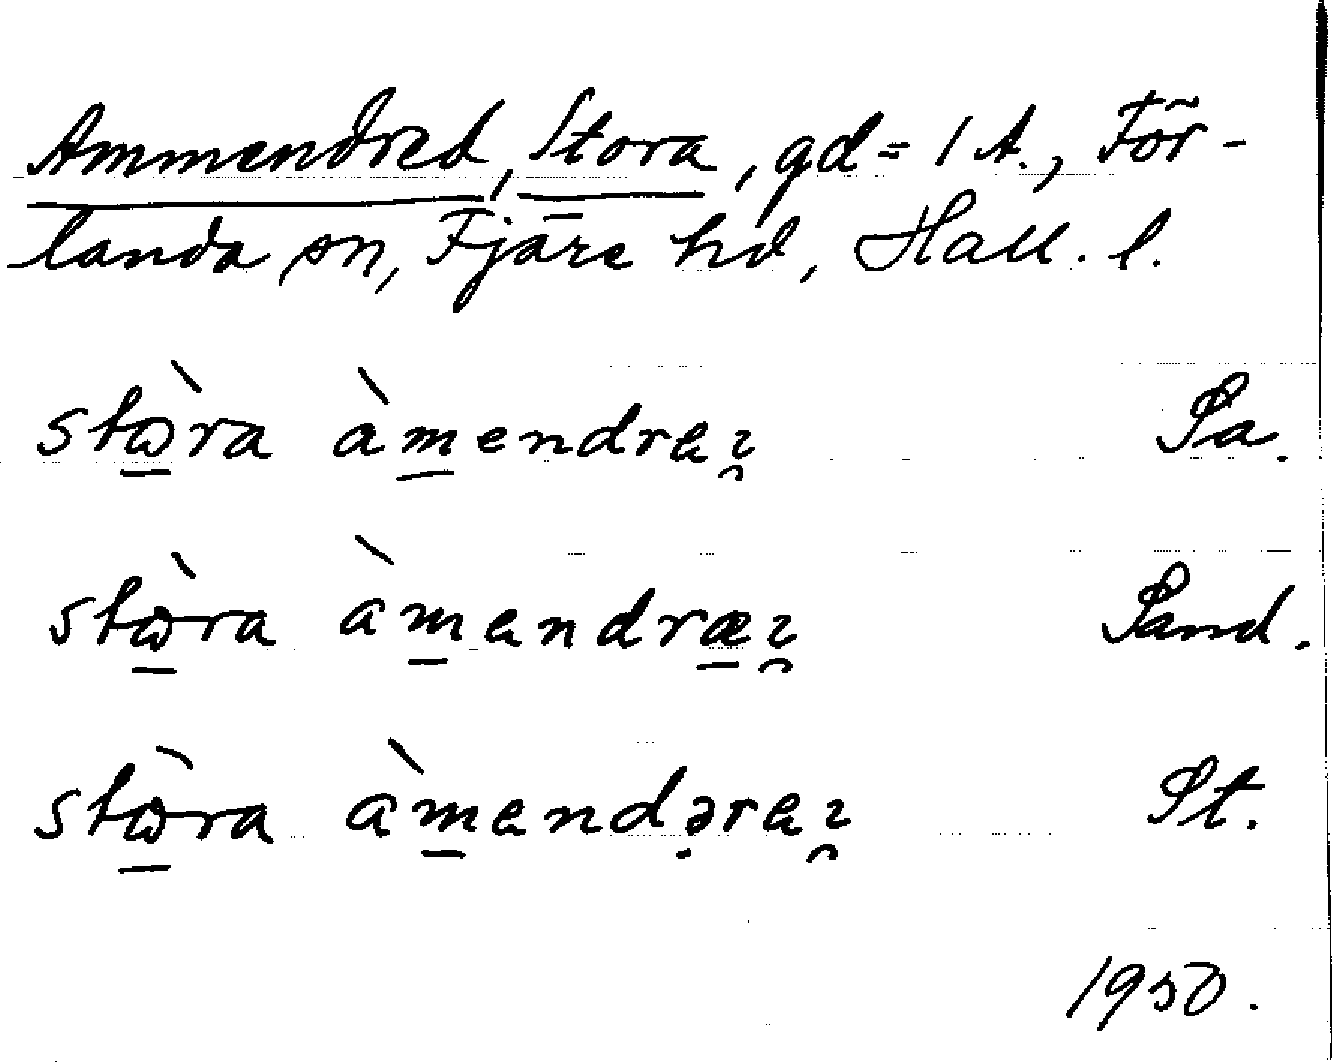 Ammendred, Stora, gd = 1 A., För-
landa sn, Fjäre hd, Hall. l.
stὼra àmendreı̯ Sa.
stὼra àmendræı̯ Sand.
stὼra àmendəreı̯ St.
1950.